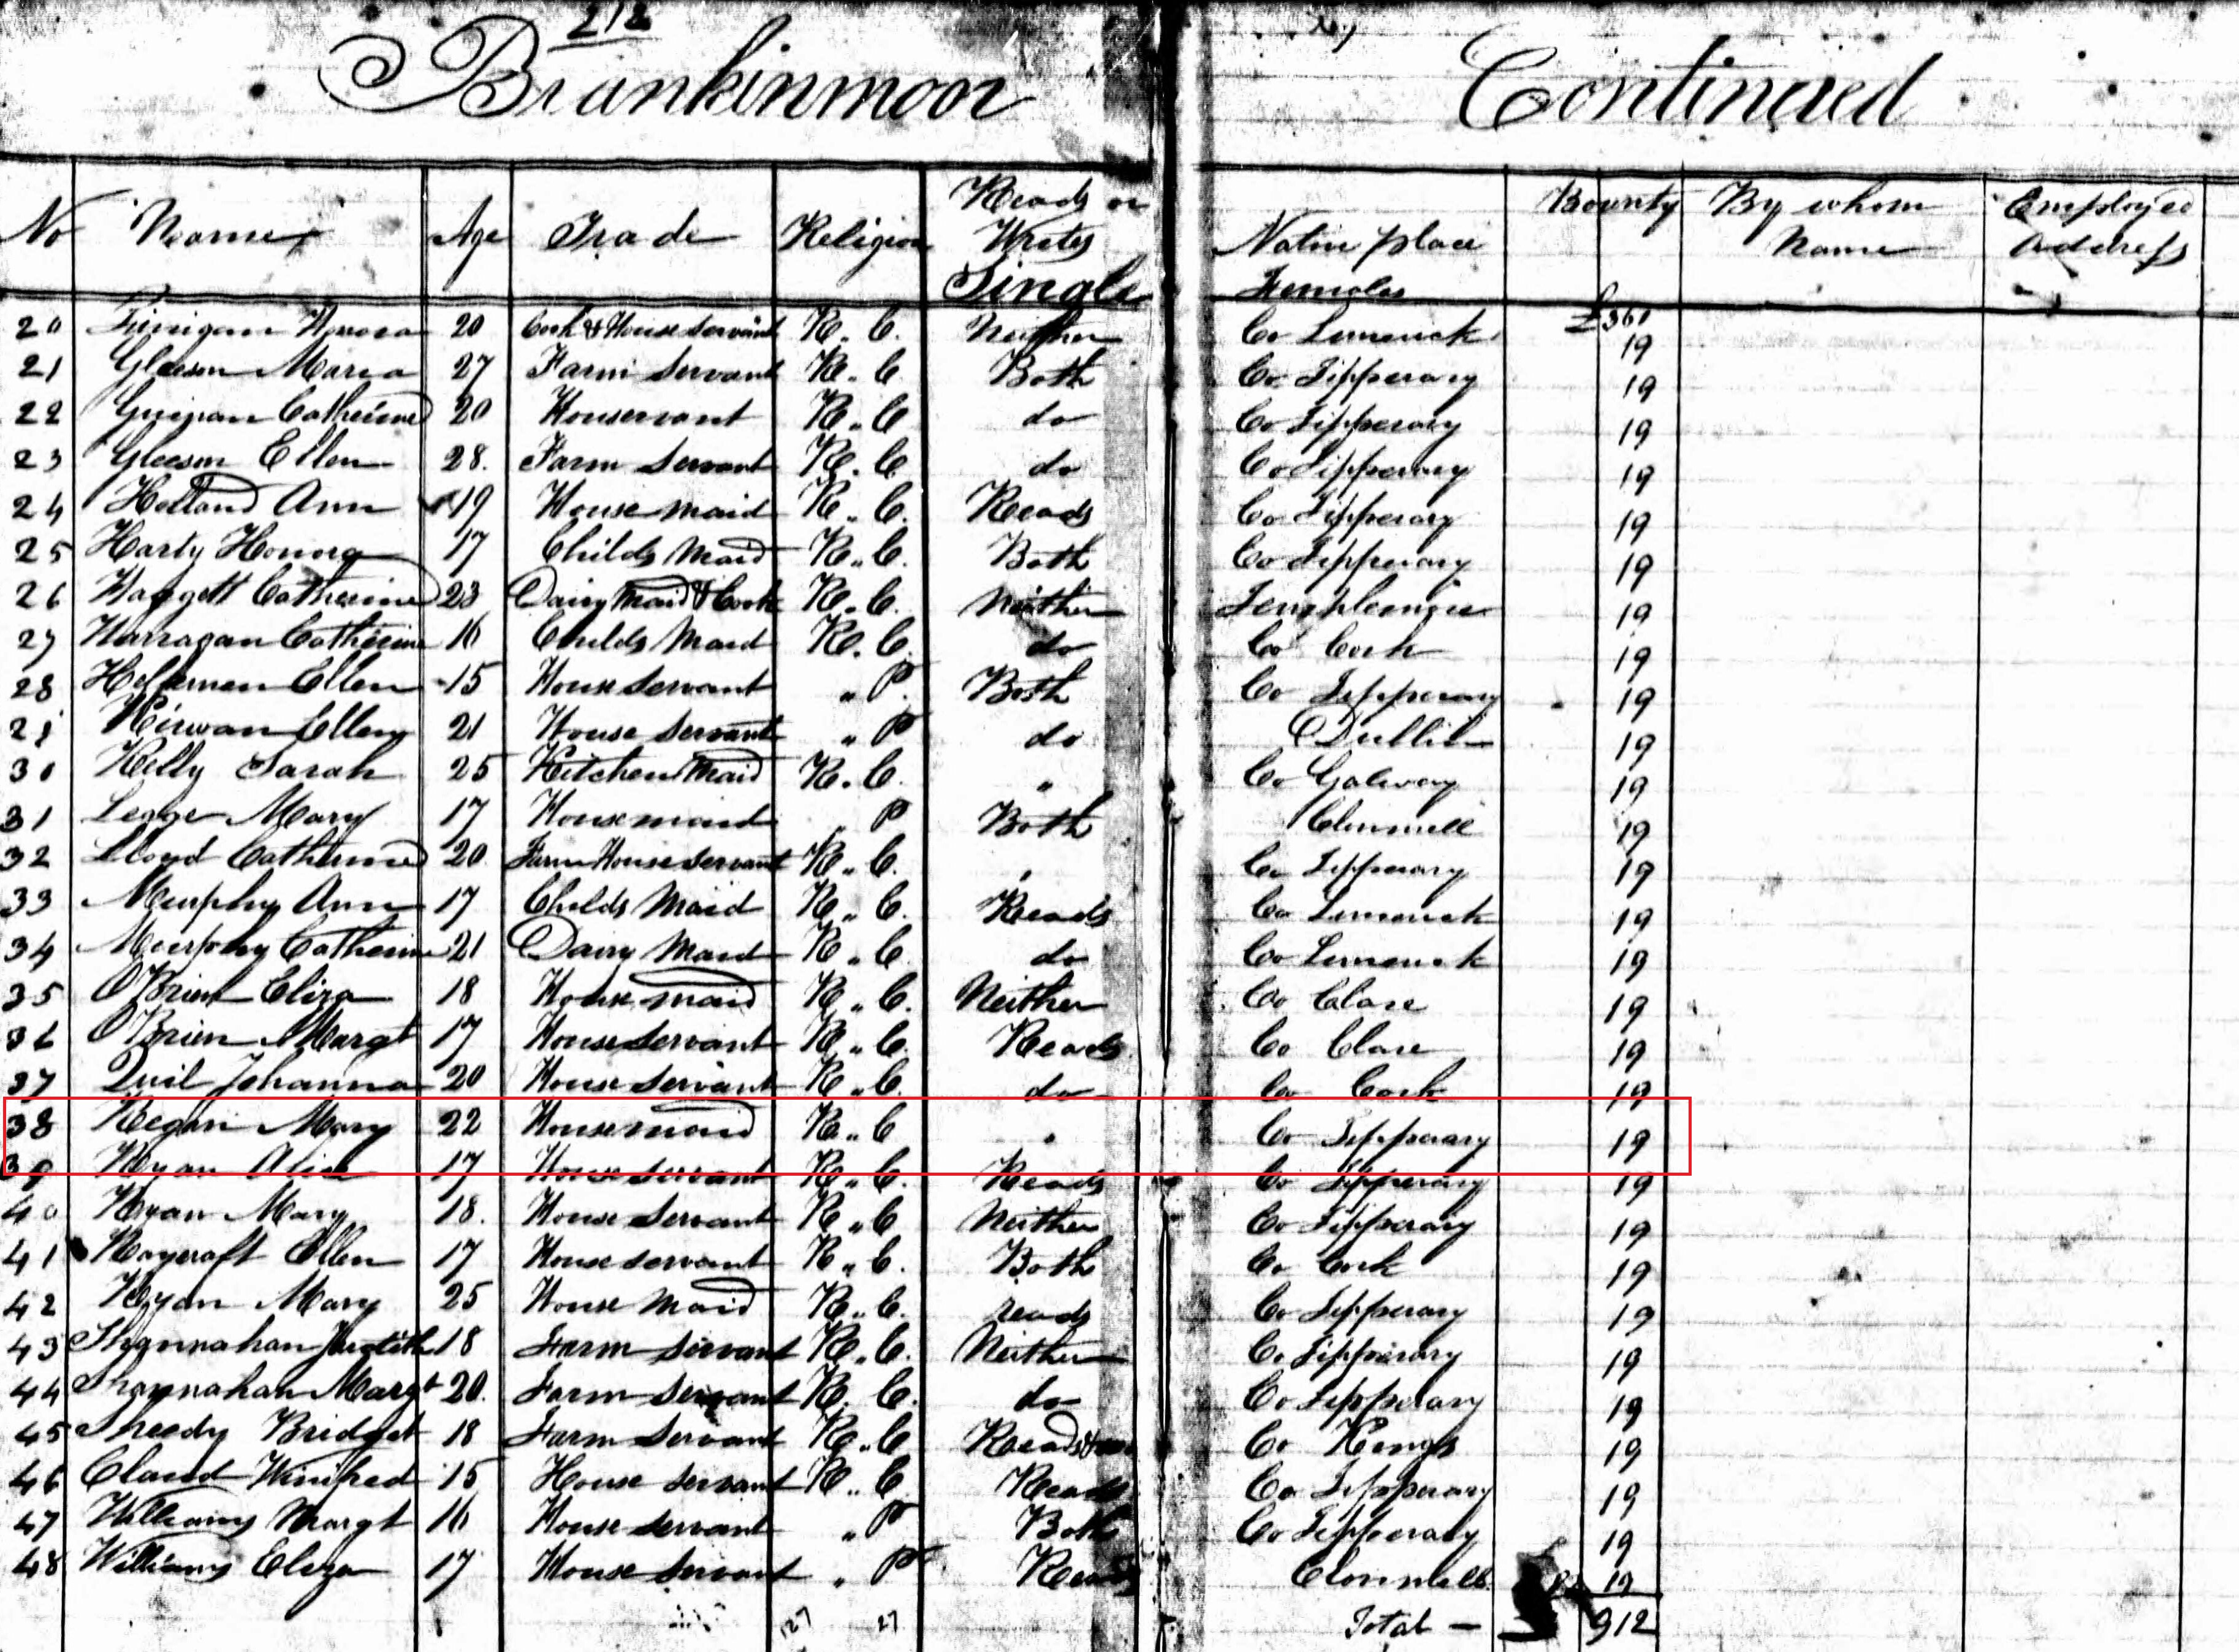 212
Brankinmoor Continued
No Name Age Trade Religion Reads or Writes Native place Bounty By whom Employed
Name Address
Single Females
£361
20 Finigan Honora 20 Cook & House Servant R. C. Neither Co Limerick 19
21 Gleeson Maria 27 Farm Servant R. C. Both Co Tipperary 19
22 Catherine 20 Houservant R. C do Co Tipperary 19
23 Gleeson Ellen 28. Farm Servant R. C do Co Tipperary 19
24 Holland Ann 19 House maid R. C. Reads Co Tipperary 19
25 Harty Honora 17 Childs Maid R. C. Both Co Tipperary 19
26 Haggett Catherine 23 Dairy Maid & Cook R. C. Neither 19
27 Harragan Catherine 16 Childs Maid R. C. do Co Cork 19
28 Heffernen Ellen 15 House Servant " P. Both Co Tipperary 19
29 Kirwan Ellen 21 House Servant " P do Dublin 19
30 Kelly Sarah 25 Kitchen Maid R. C. " Co Galway 19
31 Legge Mary 17 Housemaid " P Both Clonmell 19
32 Lloyd Catherine 20 Farm House Servant R. C. " Co Tipperary 19
33 Murphy Ann 17 Childs Maid R. C. Reads Co Limerick 19
34 Murphy Catherine 21 Dairy Maid R. C. do Co Limerick 19
35 O'Brien Eliza 18 House maid R. C. Neither Co Clare 19
36 O'Brien Margt 17 House servant R. C. Reads Co Clare 19
37 Quil Johanna 20 House Servant R. C. do Co Cork 19
38 Regan Mary 22 Housemaid R. C " Co Tipperary 19
39 Ryan Alice 17 House servant R. C. Reads Co Tipperary 19
40 Ryan Mary 18. House Servant R. C Neither Co Tipperary 19
41 Roycraft Ellen 17 House servant R. C. Both Co Cork 19
42 Ryan Mary 25 House Maid R. C. reads Co Tipperary 19
43 Shannahan Judith 18 Farm Servant R. C. Neither Co Tipperary 19
44 Shannahan Margt 20. Farm Servant R. C. do Co Tipperary 19
45 Sheedy Bridget 18 Farm Servant R. C Reads Co Kings 19
46 Winifred 15 House Servant R. C. Reads Co Tipperary 19
47 Williams Margt 16 House Servant " P Both Co Tipperary 19
48 Williams Eliza 17 House Servant " P Reads Clonmell 19
27 27 Total — 912